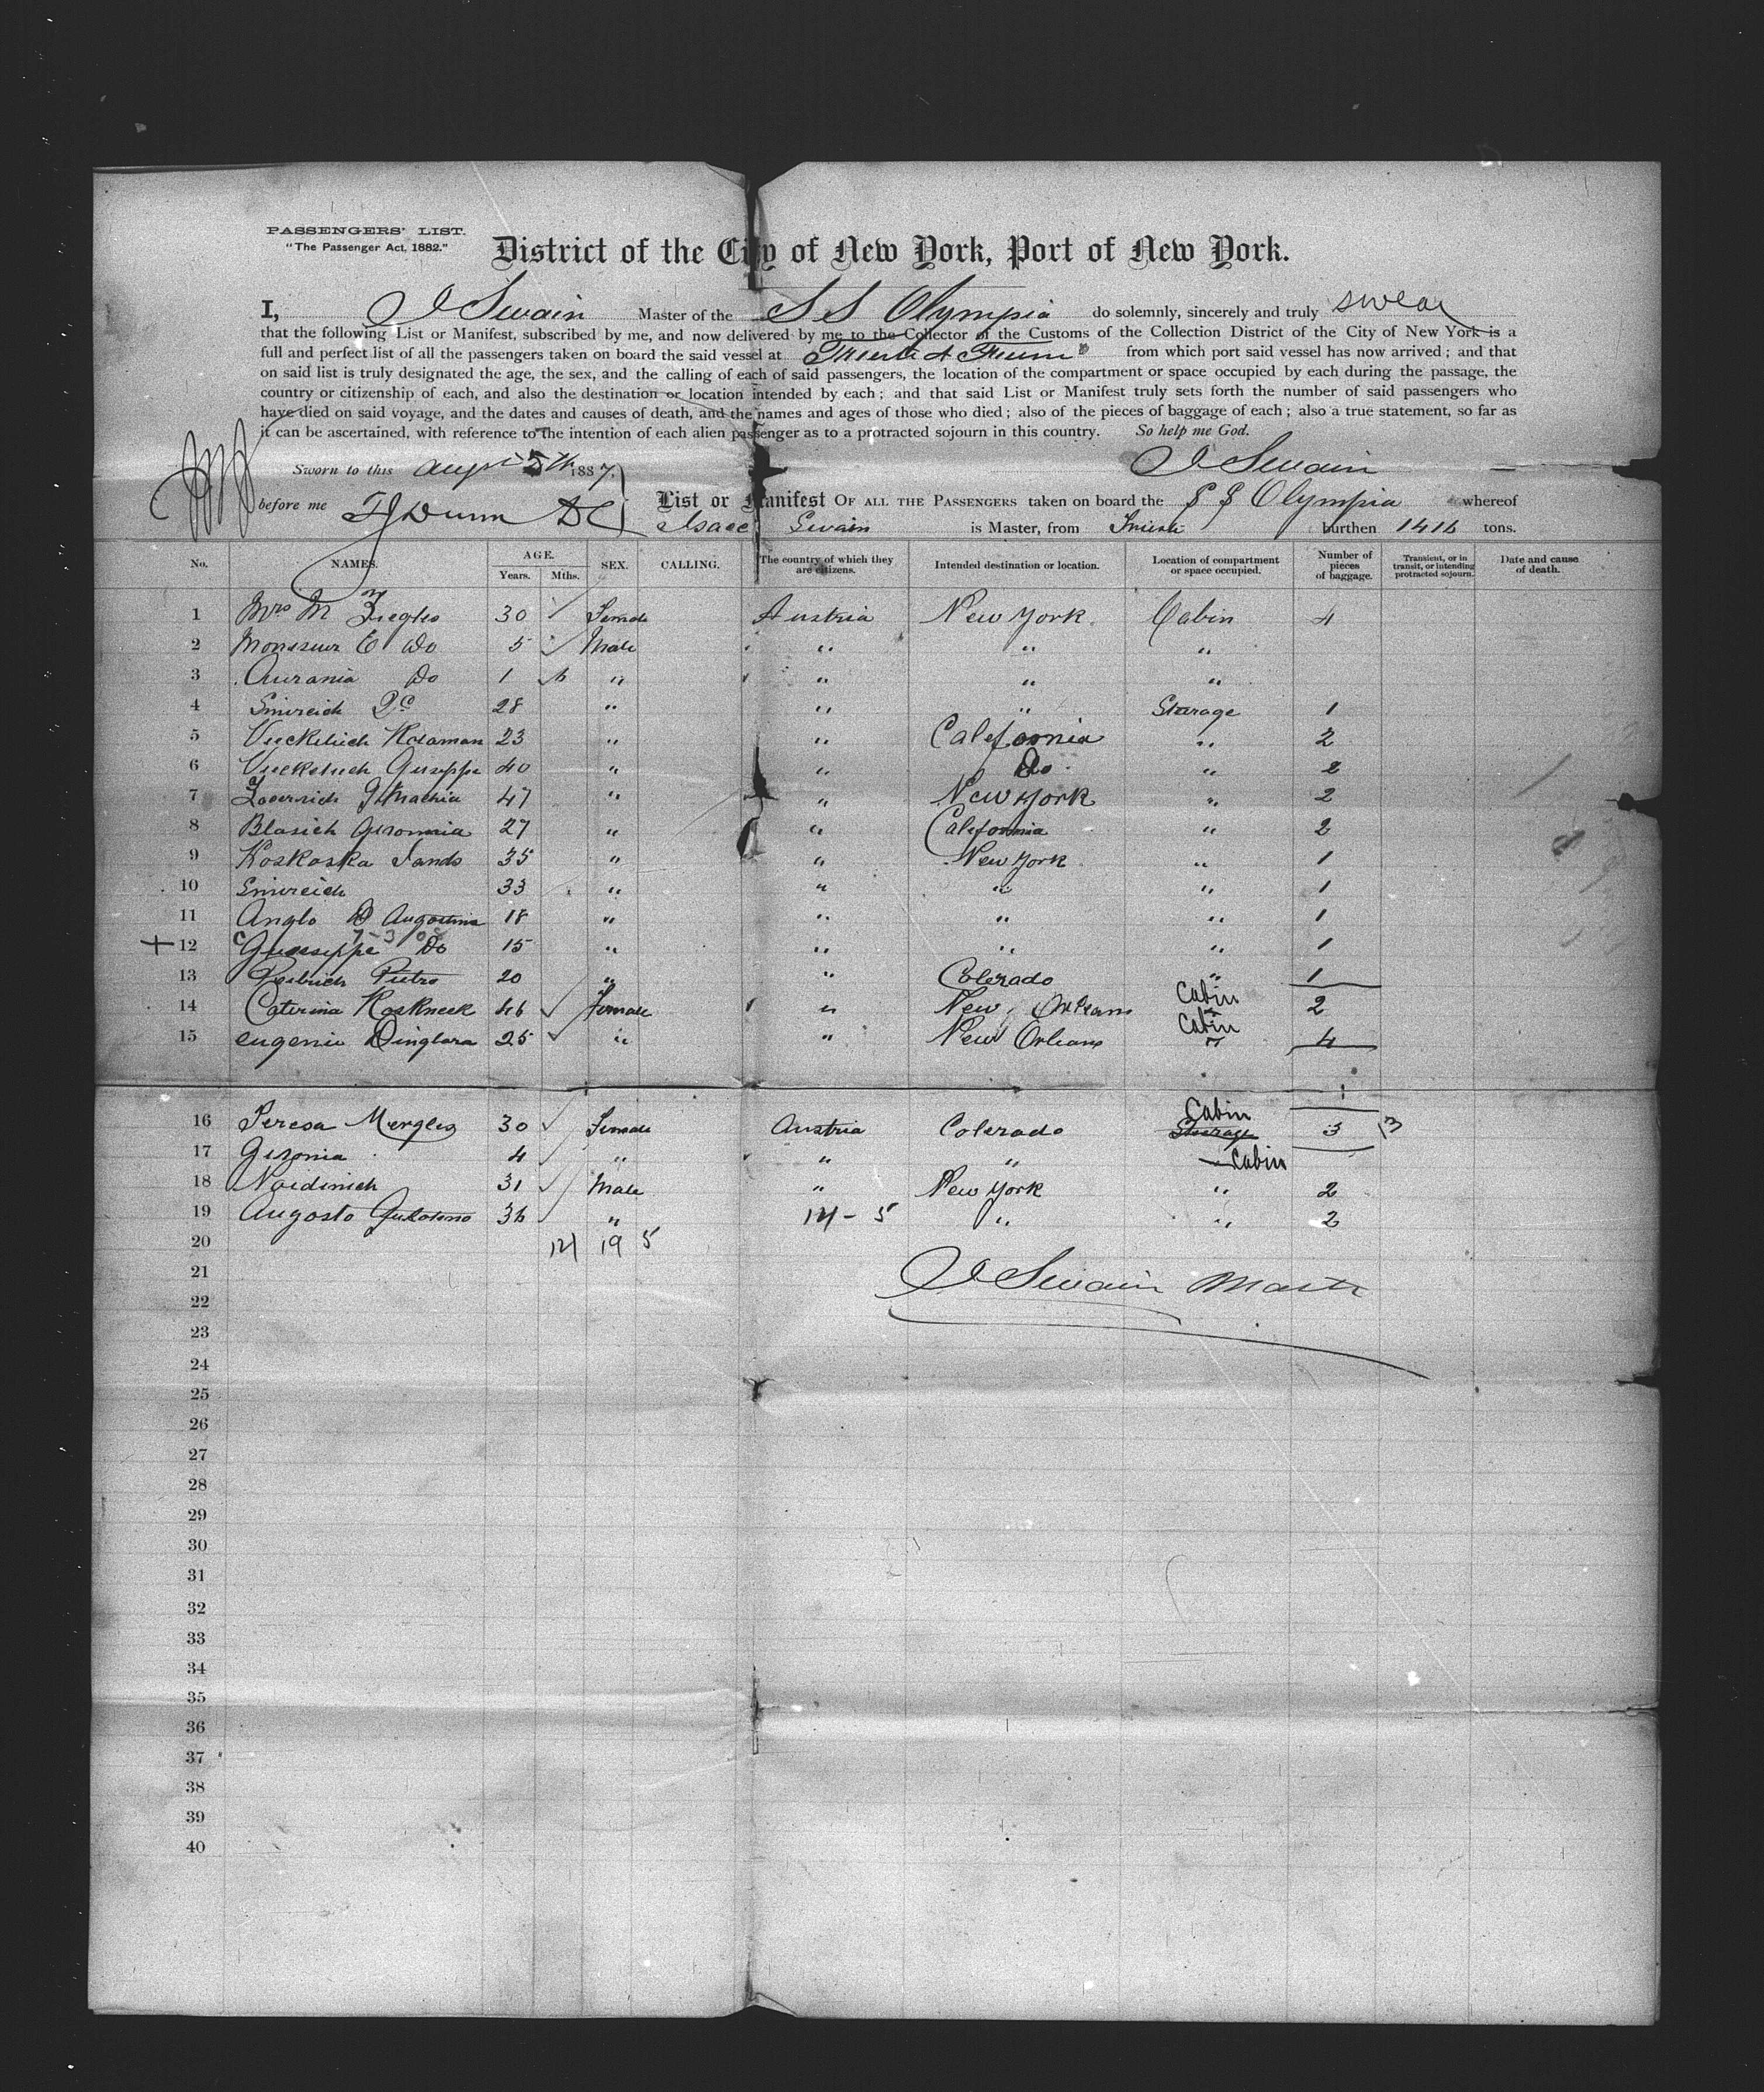 PASSENGERS' LIST.
"The Passenger Act, 1882."
District of the City of New York, Port of New York.
I, I Swain Master of the S S Olympia do solemnly, sincerely and truly swear
that the following List or Manifest, subscribed by me, and now delivered by me to the Collector of the Customs of the Collection District of the City of New York is a
full and perfect list of all the passengers taken on board the said vessel at Trieste & Fiume from which port said vessel has now arrived; and that
on said list is truly designated the age, the sex, and the calling of each of said passengers, the location of the compartment or space occupied by each during the passage, the
country or citizenship of each, and also the destination or location intended by each; and that said List or Manifest truly sets forth the number of said passengers who
have died on said voyage, and the dates and causes of death, and the names and ages of those who died; also of the pieces of baggage of each; also a true statement, so far as
it can be ascertained, with reference to the intention of each alien passenger as to a protracted sojourn in this country. So help me God.
Sworn to this Augt 5th 1887. I Swain
before me F J Dunn D C
List or Manifest OF ALL THE PASSENGERS taken on board the S S Olympia whereof
Isaac Swain is Master, from Trieste burthen 1416 tons.
No. NAMES. AGE. Years. Mths. SEX. CALLING. The country of which they are citizens. Intended destination or location. Location of compartment or space occupied. Number of pieces of baggage. Transient, or in transit, or intending protracted sojourn. Date and cause of death.
1 Mrs M 30 Female Austria New York. Cabin 4
2 Monsieur E Do 5 Male " " "
3 Aurania Do 1 " " " "
4 28 " " " Sterage 1
5 23 " " California " 2
6 Guseppe 40 " " Do " 2
7 47 " " New York " 2
8 Blasich 27 " " California " 2
9 Koskoska 35 " " New York " 1
10 33 " " " " 1
11 Anglo D Augostino 18 " " " " 1
+ 12 Gueseppe Do 15 " " " " 1
13 Pietro 20 " " Colerado " 1
14 Caterina 46 Female " New Orleans Cabin 2
15 eugenie Dinglara 25 " " New Orleans Cabin " 4
16 Teresa 30 Female Austria Colerado Cabin Sterage 3
17 4 " " " Cabin
18 Naidinich 31 Male " New York " 2
19 Augosto 36 " 14 - 5 " " 2
20 19 5
21 I Swain Master
22
23
24
25
26
27
28
29
30
31
32
33
34
35
36
37
38
39
40